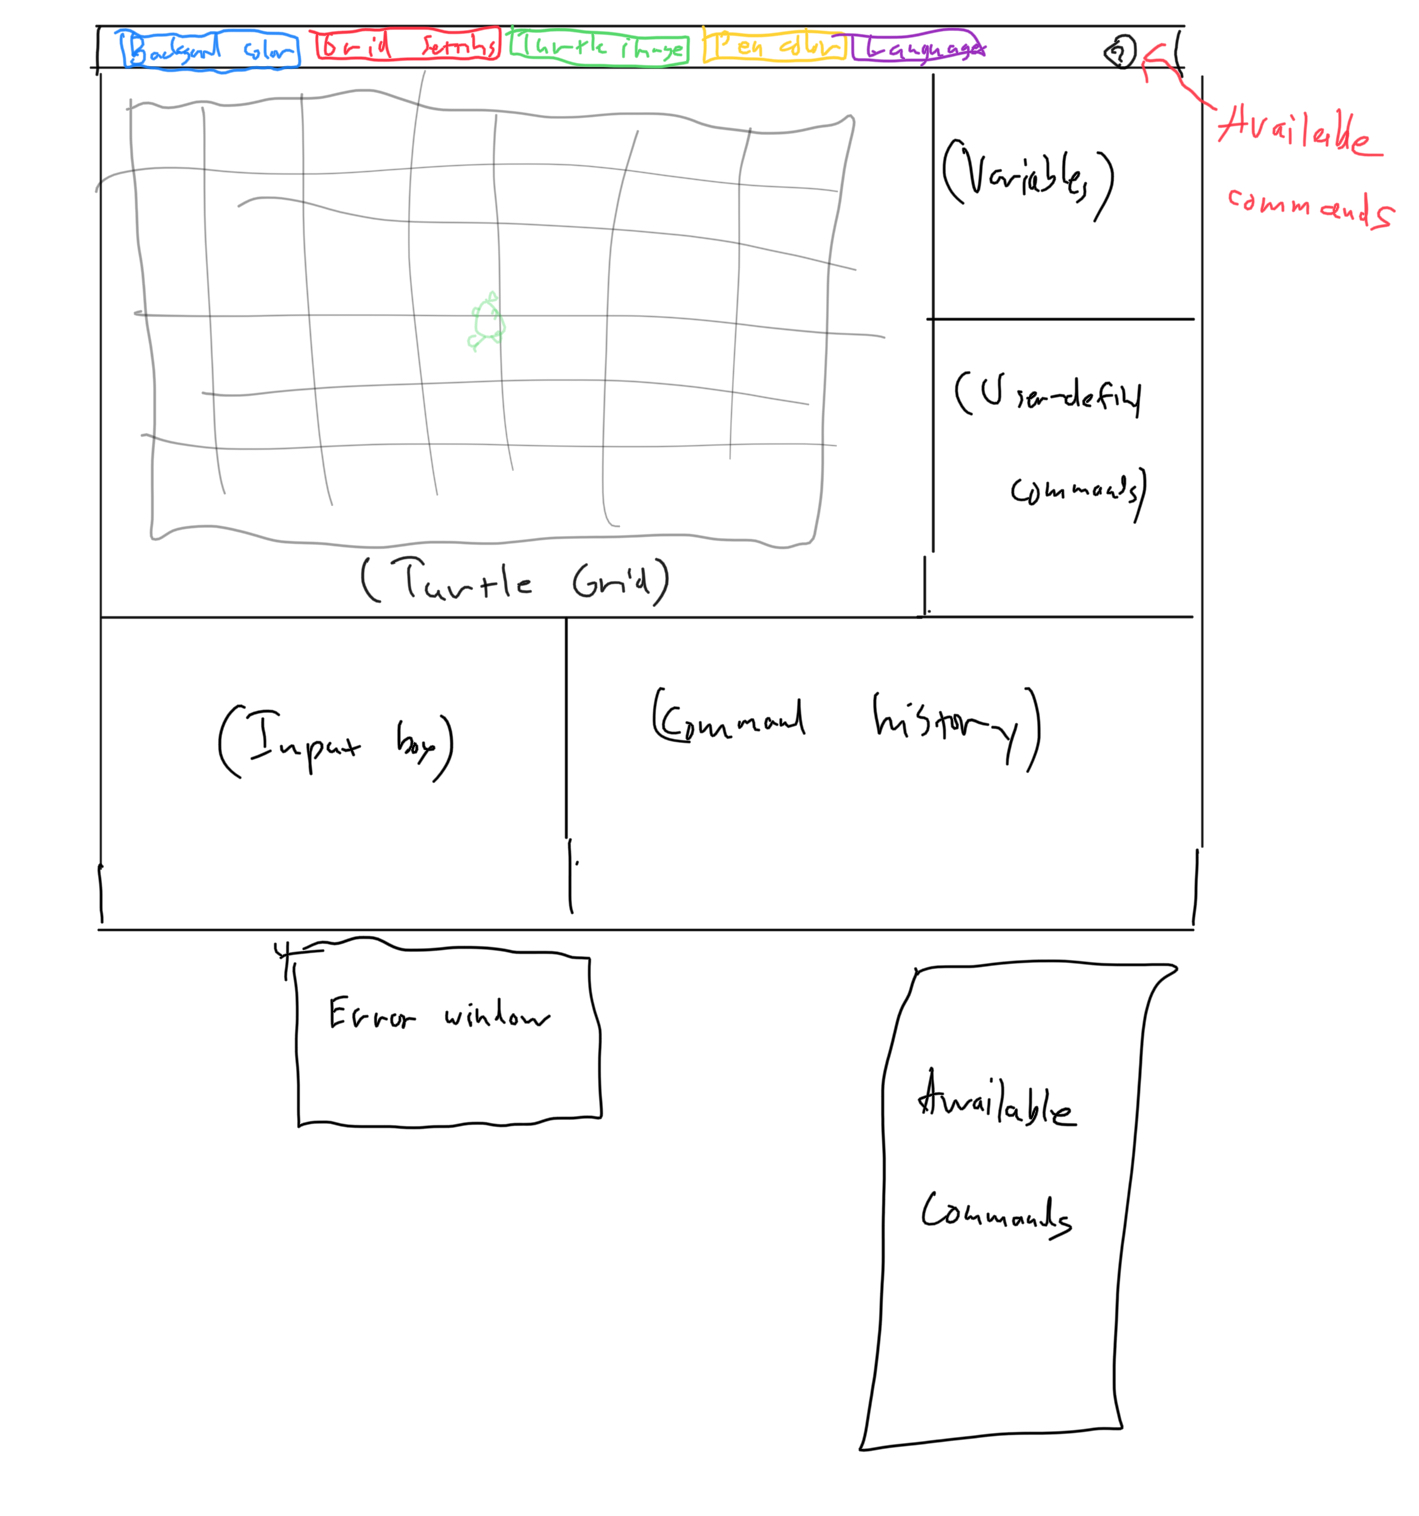 Background color Grid Settings Turtle image Pen color Language ?
Available
commands
(Variables)
(User-defin
commands)
(Turtle Grid)
(Input box)
(Command history)
Error window
Available
Commands